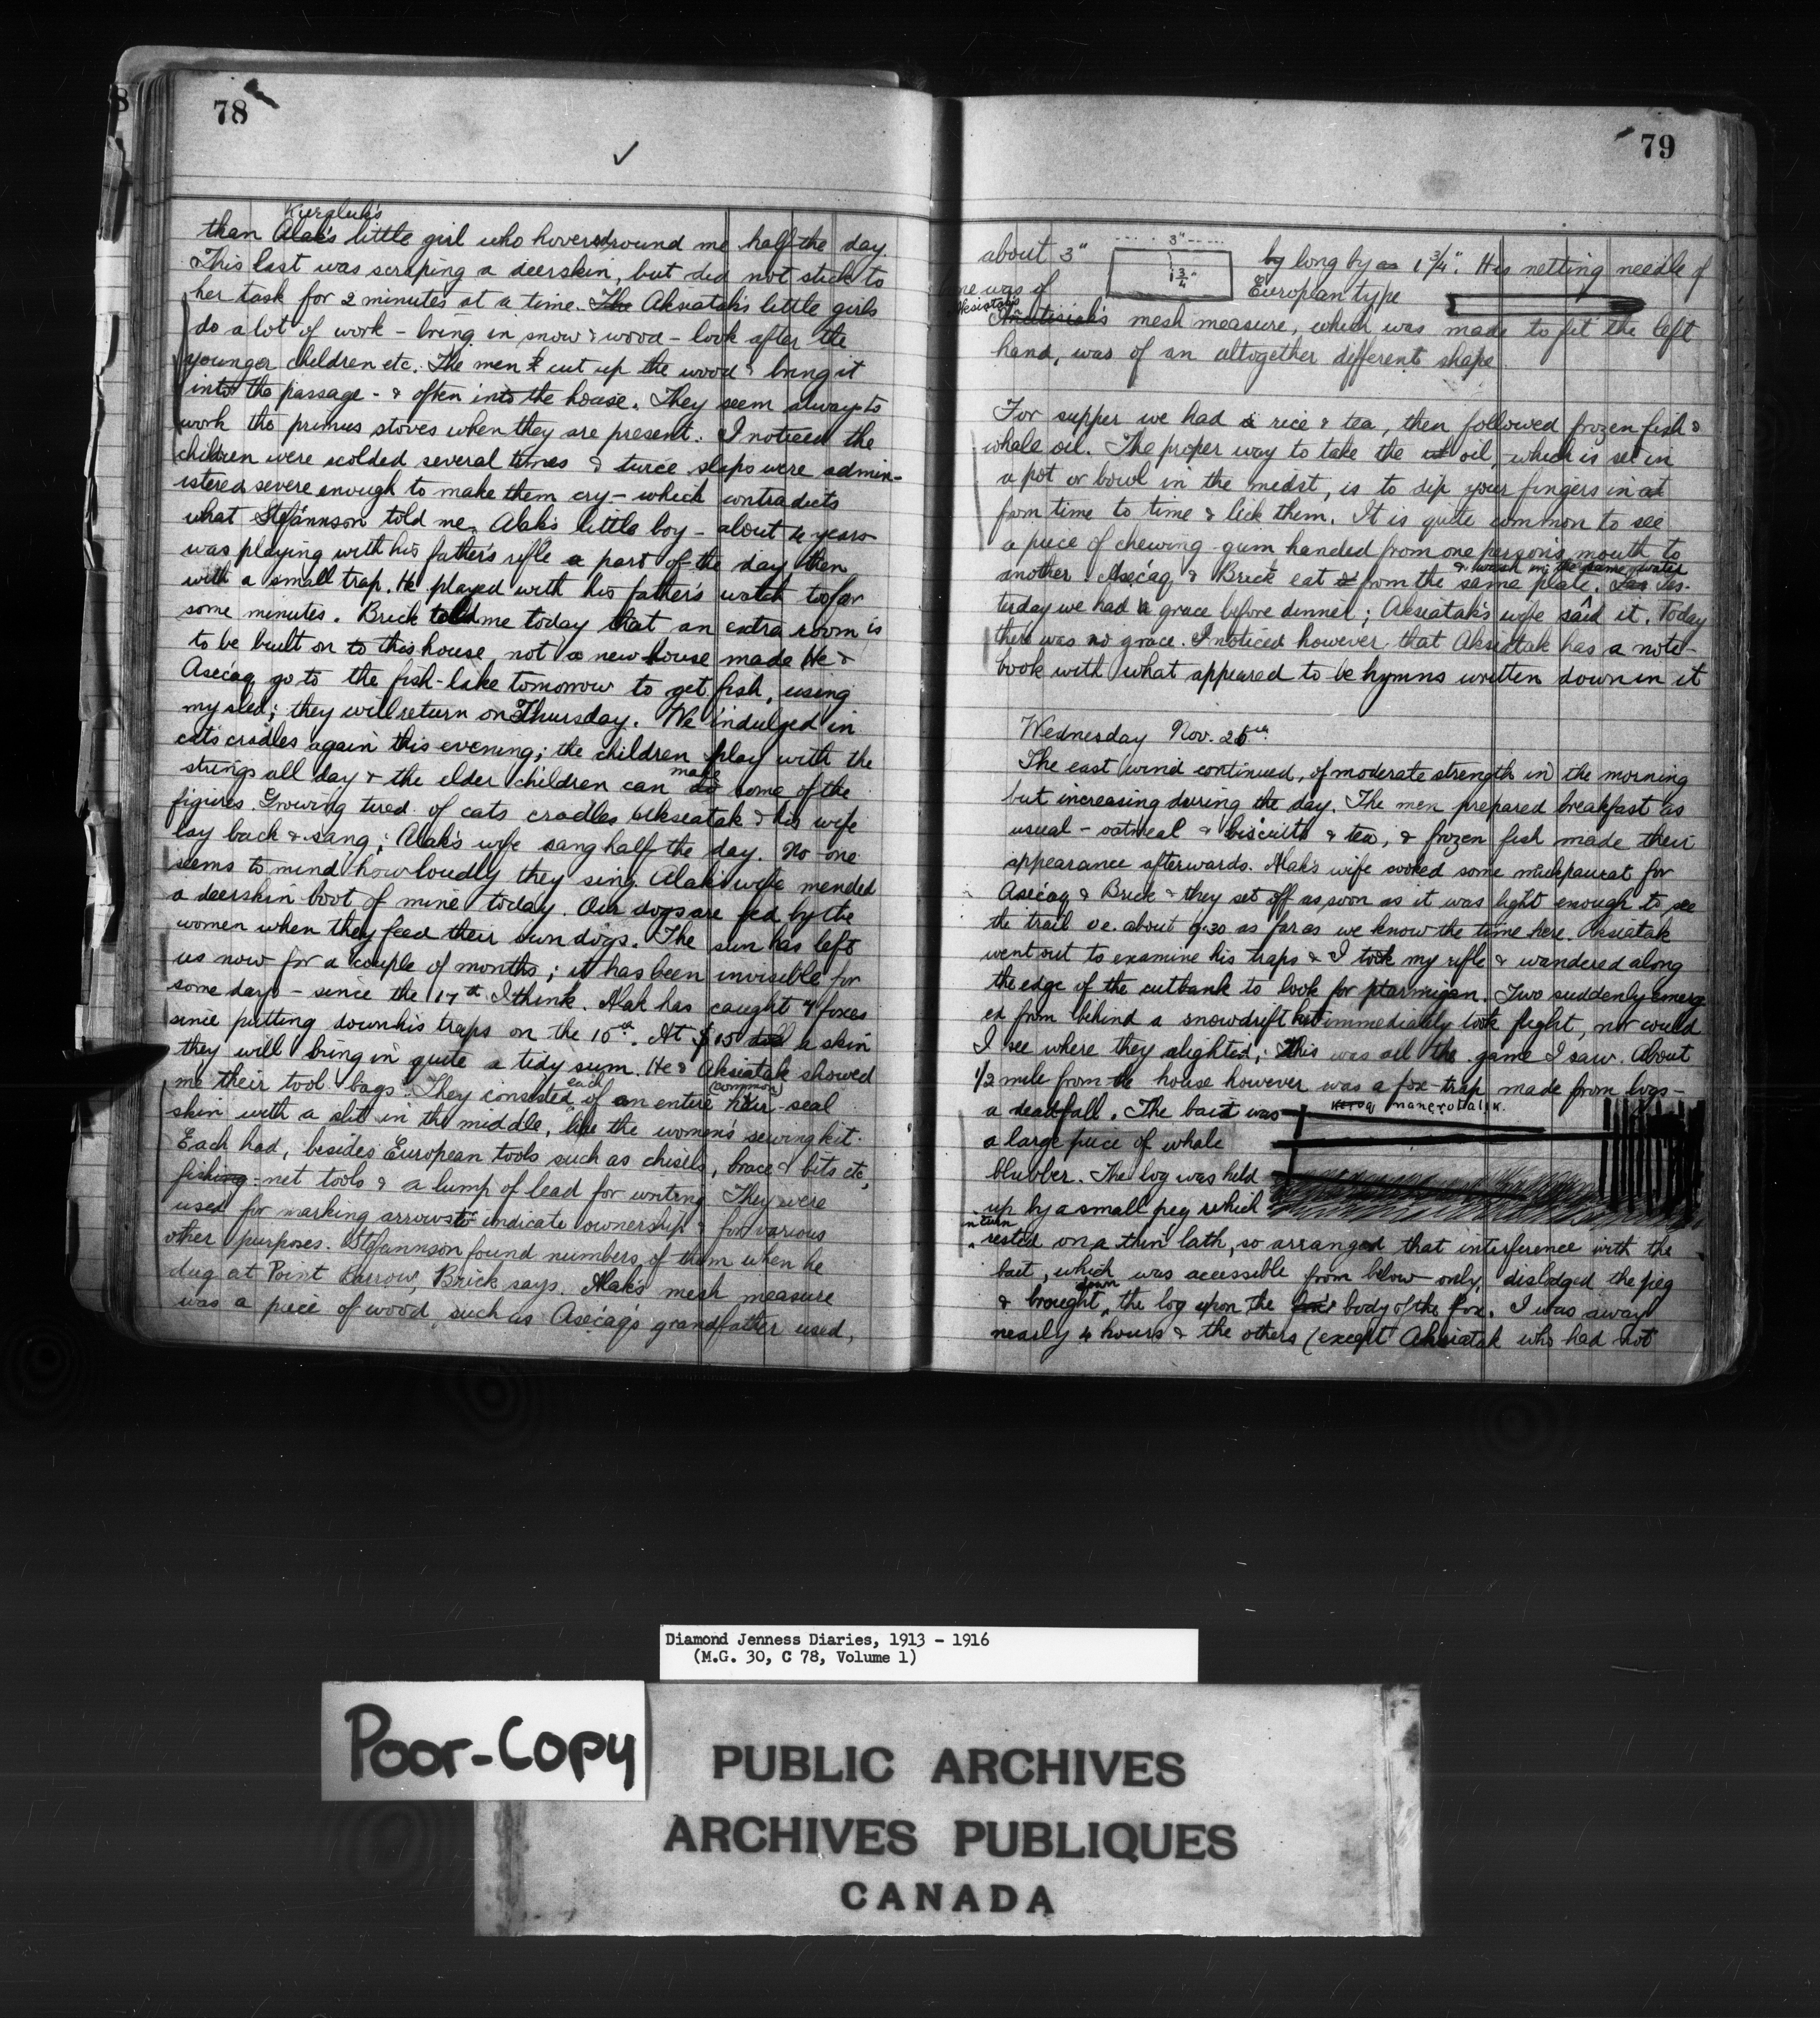 78
✓
Kurgluk's
than Alak's little girl who hovered round me half the day.
This last was scraping a deerskin, but did not stick to
her task for 2 minutes at a time. The Aksiatak's little girls
do a lot of work – bring in snow & wood – look after the
younger children etc. The men cut up the wood & bring it
into the passage - & often into the house. They seem always to
work the primus stoves when they are present. I noticed the
children were scolded several times & twice slaps were admin-
istered severe enough to make them cry – which contradicts
what Stefánnson told me. Alak's little boy – about 4 years
was playing with his father's rifle a part of the day then
with a small trap. He played with his father's watch too for
some minutes. Brick told me today that an extra room is
to be built on to this house, not a new house made. He &
Aséćaq go to the fish-lake tomorrow to get fish, using
my sled; they will return on Thursday. We indulged in
cats cradles again this evening; the children play with the
make
strings all day & the elder children can do some of the
figures. Growing tired of cats cradles Aksiatak & his wife
lay back & sang; Alak's wife sang half the day. No one
seems to mind how loudly they sing. Alak's wife mended
a deerskin boot of mine today. Our dogs are fed by the
women when they feed their own dogs. The sun has left
us now for a couple of months; it has been invisible for
some days – since the 17th I think. Alak has caught 7 foxes
since putting down his traps on the 15th. At $15 a skin
they will bring in quite a tidy sum. He & Aksiatak showed
each (common)
me their tool bags. They consisted of an entire hair-seal
skin with a slit in the middle, like the women's sewing kit.
Each had, besides European tools such as chisels, brace & bits etc,
fishing-net tools & a lump of lead for writing. They were
used for marking arrows to indicate ownership & for various
other purposes. Stefánnson found numbers of them when he
dug at Point Barrow, Brick says. Alak's mesh measure
was a piece of wood, such as Aséćaq's grandfather used,
79
about 3" 3" by long by as 1 3/4". His netting needle of
1 3/4"
bone was of European type
Aksiatak's
mesh measure, which was made to fit the left
hand, was of an altogether different shape.
For supper we had rice & tea, then followed frozen fish &
whale oil. The proper way to take the oil, which is set in
a pot or bowl in the midst, is to dip your fingers in at
from time to time & lick them. It is quite common to see
a piece of chewing-gum handed from one person's mouth to
& wash in the same water
another. Aséćaq & Brick eat from the same plate. Yes-
terday we had a grace before dinner; Aksiatak's wife said it. Today
there was no grace. I noticed however that Aksiatak has a note-
book with what appeared to be hymns written down in it
Wednesday Nov. 26th
The east wind continued, of moderate strength in the morning
but increasing during the day. The men prepared breakfast as
usual – oatmeal & biscuits & tea, & frozen fish made their
appearance afterwards. Alak's wife cooked some mukpaurat for
Aséćaq & Brick & they set off as soon as it was light enough to see
the trail i.e. about 9.30 as far as we know the time here. Aksiatak
went out to examine his traps & I took my rifle & wandered along
the edge of the cutbank to look for ptarmigan. Two suddenly emerg-
ed from behind a snowdrift but immediately took flight, nor could
I see where they alighted; this was all the game I saw. About
1/2 mile from the house however was a fox-trap made from logs –
a deadfall. The bait was
a large piece of whale
blubber. The log was held
up by a small peg which
in turn
rested on a thin lath, so arranged that interference with the
bait, which was accessible from below only, dislodged the peg
down
& brought the log upon the fox's body of the fox. I was away
nearly 4 hours & the others (except Aksiatak who had not
Diamond Jenness Diaries, 1913 - 1916
(M.G. 30, C 78, Volume 1)
Poor-Copy
PUBLIC ARCHIVES
ARCHIVES PUBLIQUES
CANADA